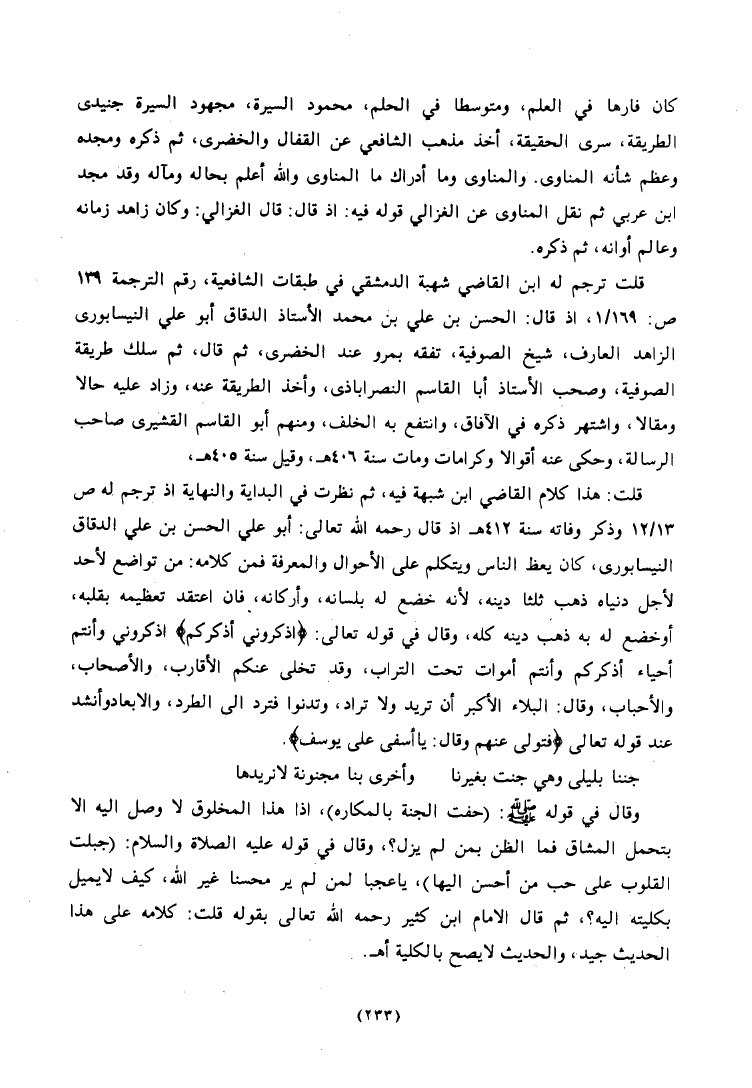 كان فارها في العلم، ومتوسطا في الحلم، محمود السيرة، مجهود السيرة جنيدى
الطريقة، سرى الحقيقة، أخذ مذهب الشافعي عن القفال والخضرى، ثم ذكره ومجده
وعظم شأنه المناوى. والمناوى وما أدراك ما المناوى والله أعلم بحاله ومآله وقد مجد
ابن عربي ثم نقل المناوى عن الغزالي قوله فيه: اذ قال: قال الغزالي: وكان زاهد زمانه
وعالم أوانه، ثم ذكره.
قلت ترجم له ابن القاضي شهبة الدمشقي في طبقات الشافعية، رقم الترجمة ١٣٩
ص: ١/١٦٩، اذ قال: الحسن بن علي بن محمد الأستاذ الدقاق أبو علي النيسابورى
الزاهد العارف، شيخ الصوفية، تفقه بمرو عند الخضرى، ثم قال، ثم سلك طريقة
الصوفية، وصحب الأستاذ أبا القاسم النصراباذى، وأخذ الطريقة عنه، وزاد عليه حالا
ومقالا، واشتهر ذكره في الآفاق، وانتفع به الخلف، ومنهم أبو القاسم القشيرى صاحب
الرسالة، وحكى عنه أقوالا وكرامات ومات سنة ٤٠٦هـ، وقيل سنة ٤٠٥هـ،
قلت: هذا كلام القاضي ابن شبهة فيه، ثم نظرت في البداية والنهاية اذ ترجم له ص
١٢/١٣ وذكر وفاته سنة ٤١٢هـ اذ قال رحمه الله تعالى: أبو علي الحسن بن علي الدقاق
النيسابورى، كان يعظ الناس ويتكلم على الأحوال والمعرفة فمن كلامه: من تواضع لأحد
لأجل دنياه ذهب ثلثا دينه، لأنه خضع له بلسانه، وأركانه، فان اعتقد تعظيمه بقلبه،
أوخضع له به ذهب دينه كله، وقال في قوله تعالى: ﴿اذكروني أذكركم﴾ اذكروني وأنتم
أحياء أذكركم وأنتم أموات تحت التراب، وقد تخلى عنكم الأقارب، والأصحاب،
والأحباب، وقال: البلاء الأكبر أن تريد ولا تراد، وتدنوا فترد الى الطرد، والابعادوأنشد
عند قوله تعالى ﴿فتولى عنهم وقال: ياأسفى على يوسف﴾.
جننا بليلى وهي جنت بغيرنا وأخرى بنا مجنونة لانريدها
وقال في قوله ﷺ: (حفت الجنة بالمكاره)، اذا هذا المخلوق لا وصل اليه الا
بتحمل المشاق فما الظن بمن لم يزل؟، وقال في قوله عليه الصلاة والسلام: (جبلت
القلوب على حب من أحسن اليها)، ياعجبا لمن لم ير محسنا غير الله، كيف لايميل
بكليته اليه؟، ثم قال الامام ابن كثير رحمه الله تعالى بقوله قلت: كلامه على هذا
الحديث جيد، والحديث لايصح بالكلية أهـ.
(٢٣٣)